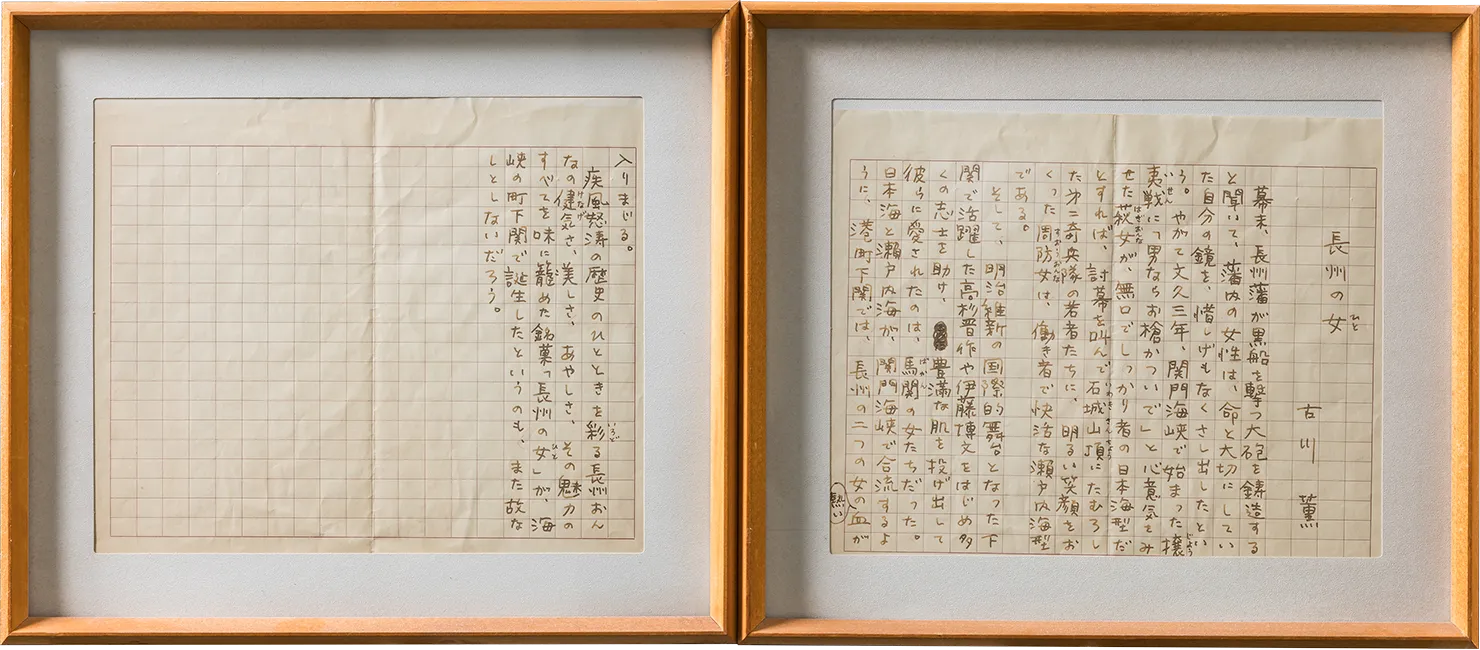 長州の女
ひと
古川 薫
幕末、長州藩が黒船を撃つ大砲を鋳造する
と聞いて、藩内の女性は、命と大切にしてい
た自分の鏡を、惜しげもなくさし出したとい
う。やがて文久三年、関門海峡で始まった攘
じょう
夷戦に「男ならお槍かついで」と心意気をみ
いせん
せた萩女が、無口でしっかり者の日本海型だ
はぎおんな
とすれば、討幕を叫んで石城山頂にたむろし
いわきさんちょう
た第二奇兵隊の若者たちに、明るい笑顔をお
くった周防女は、働き者で快活な瀬戸内海型
すおうおんな
である。
そして、明治維新の国際的舞台となった下
関で活躍した高杉晋作や伊藤博文をはじめ多
くの志士を助け、豊満な肌を投げ出して
彼らに愛されたのは、馬関の女たちだった。
ばかん
日本海と瀬戸内海が、関門海峡で合流するよ
うに、港町下関では、長州の二つの女の熱い血が
入りまじる。
疾風怒涛の歴史のひとときを彩る長州おん
いろど
なの健気さ、美しさ、あやしさ、その魅力の
けなげ
すべてを味に籠めた銘菓「長州の女」が、海
ひと
峡の町下関で誕生したというのも、また故な
しとしないだろう。